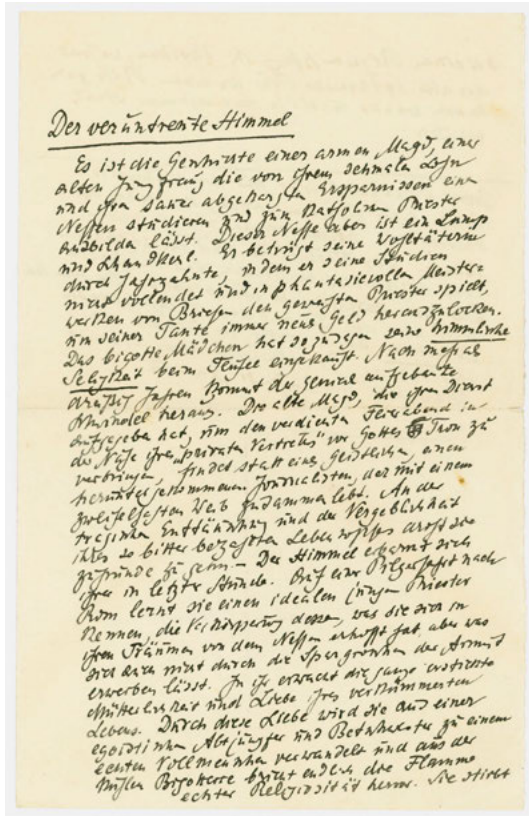 Der veruntreute Himmel
Es ist die Geschichte einer armen Magd, einer
alten Jungfrau, die von ihrem schmalen Lohn
und ihren sauer abgekargten Ersparnissen einen
Neffen studieren und zum katholischen Priester
ausbilden lässt. Dieser Neffe aber ist ein Lump
und Schandkerl. Er betrügt seine Wohltäterin
durch Jahrzehnte, indem er seine Studien
nicht vollendet und in phantasievollen Meister-
werken von Briefen den geweihten Priester spielt,
um seiner Tante immer neues Geld herauszulocken.
Das bigotte Mädchen hat sozusagen seine himmlische
Seligkeit beim Teufel eingekauft. Nach mehr als
dreißig Jahren kommt der genial aufgebaute
Schwindel heraus. Die alte Magd, die ihren Dienst
aufgegeben hat, um den verdienten Feierabend in
der Nähe ihres "privaten Vertreters" vor Gottes Tron zu
verbringen, findet statt eines Geistlichen, einen
heruntergekommenen Journalisten, der mit einem
zweifelhaften Weib zusammenlebt. An der
tragischen Enttäuschung und der Vergeblichkeit
ihres so bitter bezahlten Lebens droht sie
zugrunde zu gehn. – Der Himmel erbarmt sich
ihrer in letzter Stunde. Auf einer Pilgerfahrt nach
Rom lernt sie einen idealen jungen Priester
kennen, die Verkörperung dessen, was sie sich in
ihren Träumen von dem Neffen erhofft hat, aber was
sich eben nicht durch die Spargroschen der Armut
erwerben lässt. In ihr erwacht die ganze erstickte
Mütterlichkeit und Liebe ihres verkümmerten
Lebens. Durch diese Liebe wird sie aus einer
egoistischen Altjungfer und Betschwester zu einem
echten Vollmenschen verwandelt und aus der
kühlen Bigotterie bricht endlich die Flamme
echter Religiosität hervor. Sie stirbt